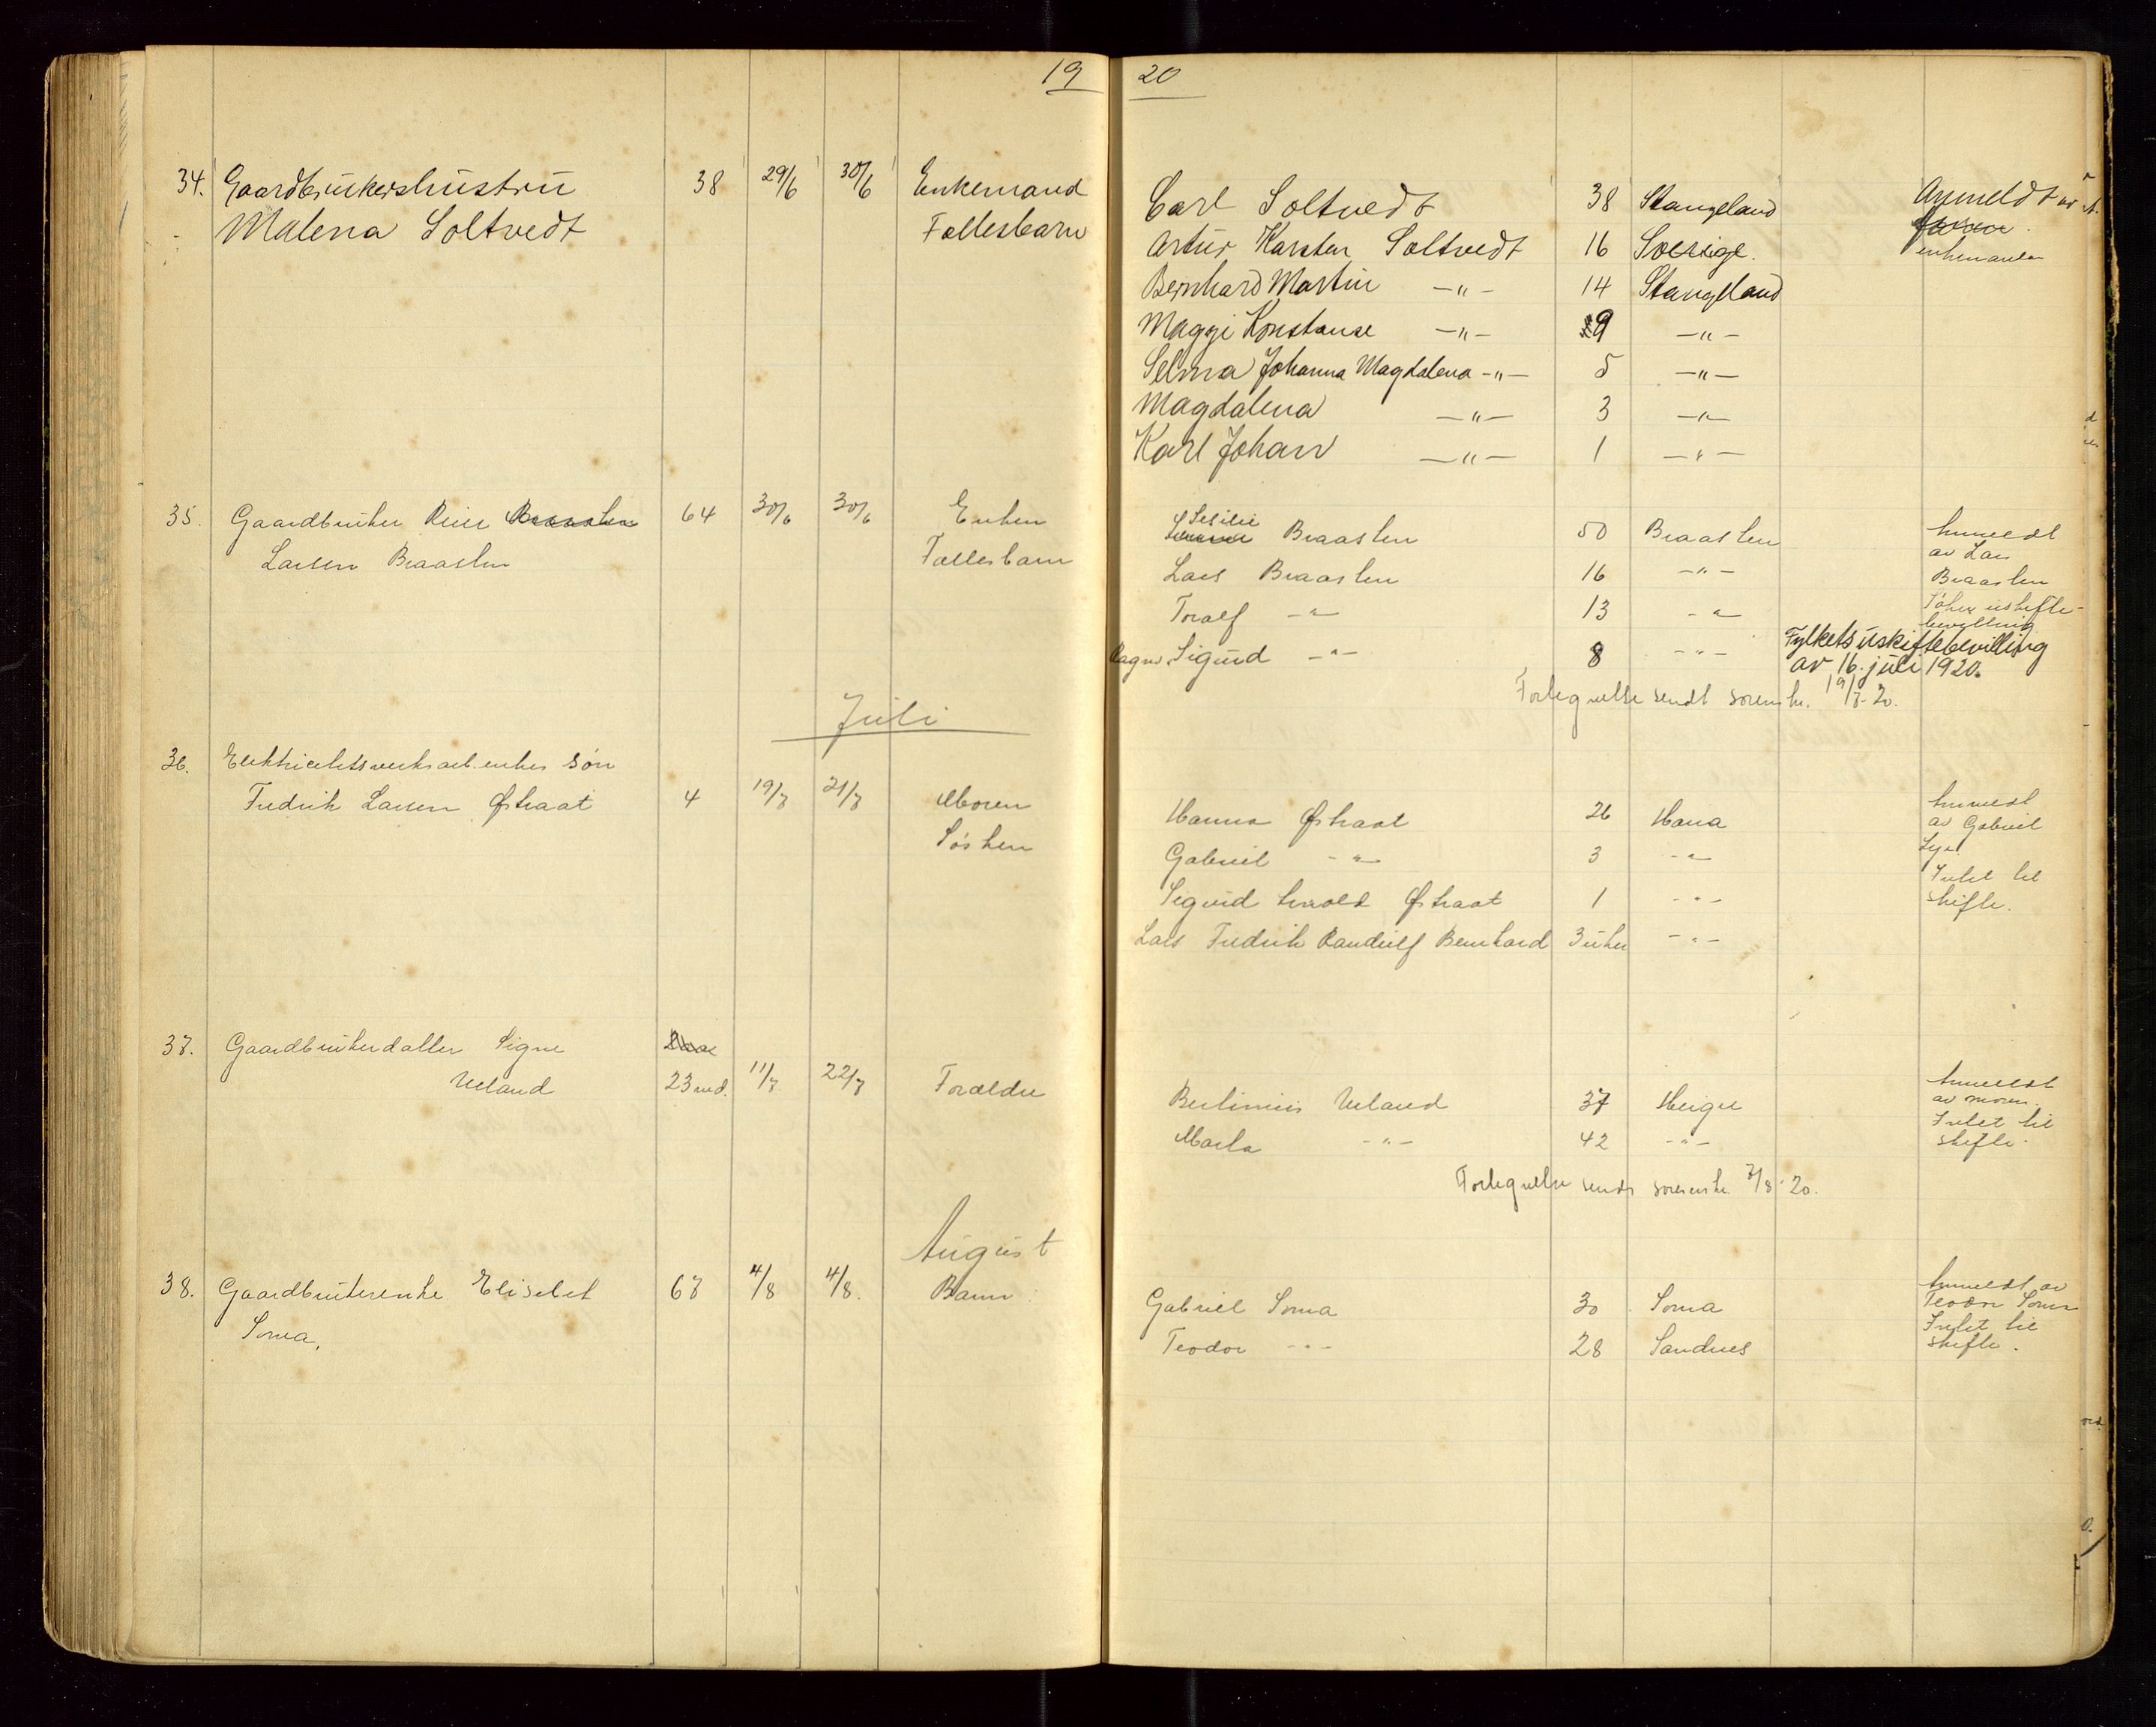 19
34. Gaardbrukershustru 38 29/6 30/6 Enkemand
Malena Soltvedt Fællesbarn
35. Gaardbruker Reier Braasten 64 30/6 30/6 Enken
Larsen Braasten Fællesbarn
Juli
36. Elektricitetsverksarb.enkes søn
Fredrik Larsen Østraat 4 19/7 21/7 Moren
Søsken
37. Gaardbrukerdatter Signe
Ueland 23 md. 11/7 22/7 Forældre
August
38. Gaardbrukerenke Elisabet 67 4/8 4/8. Barn:
Soma,
20
Carl Soltvedt 38 Stangeland Anmeldt av
Artur Karsten Soltvedt 16 Sverige. enkemanden
Bernhard Martin -"- 14 Stangeland
Maggi Konstanse -"- 9 -"-
Selma Johanna Magdalena -"- 5 -"-
Magdalena -"- 3 -"-
Karl Johan -"- 1 -"-
Sesilie
Braasten 50 Braasten Anmeldt
av Lars
Lars Braasten 16 -"- Braasten
Toralf -"- 13 -"- Søker uskifte-
bevilling
Ragnv. Sigurd -"- 8 -"- Fylkets uskiftebevilling
av 16. juli 1920.
Fortegnelse sendt sorenskr. 19/7-20.
Hanna Østraat 26 Hana Anmeldt
av Gabriel
Gabriel -"- 3 -"- Lye
Intet til
Sigurd Arnold Østraat 1 -"- skifte.
Lars Fredrik Randulf Bernhard 3 uker -"-
Bertinius Ueland 37 Heigre Anmeldt
av moren.
Marta -"- 42 -"- Intet til
skifte.
Fortegnelse sendt sorenskr. 7/8-20.
Gabriel Soma 30 Soma Anmeldt av
Teodor Soma
Teodor -"- 28 Sandnes Intet til
skifte.